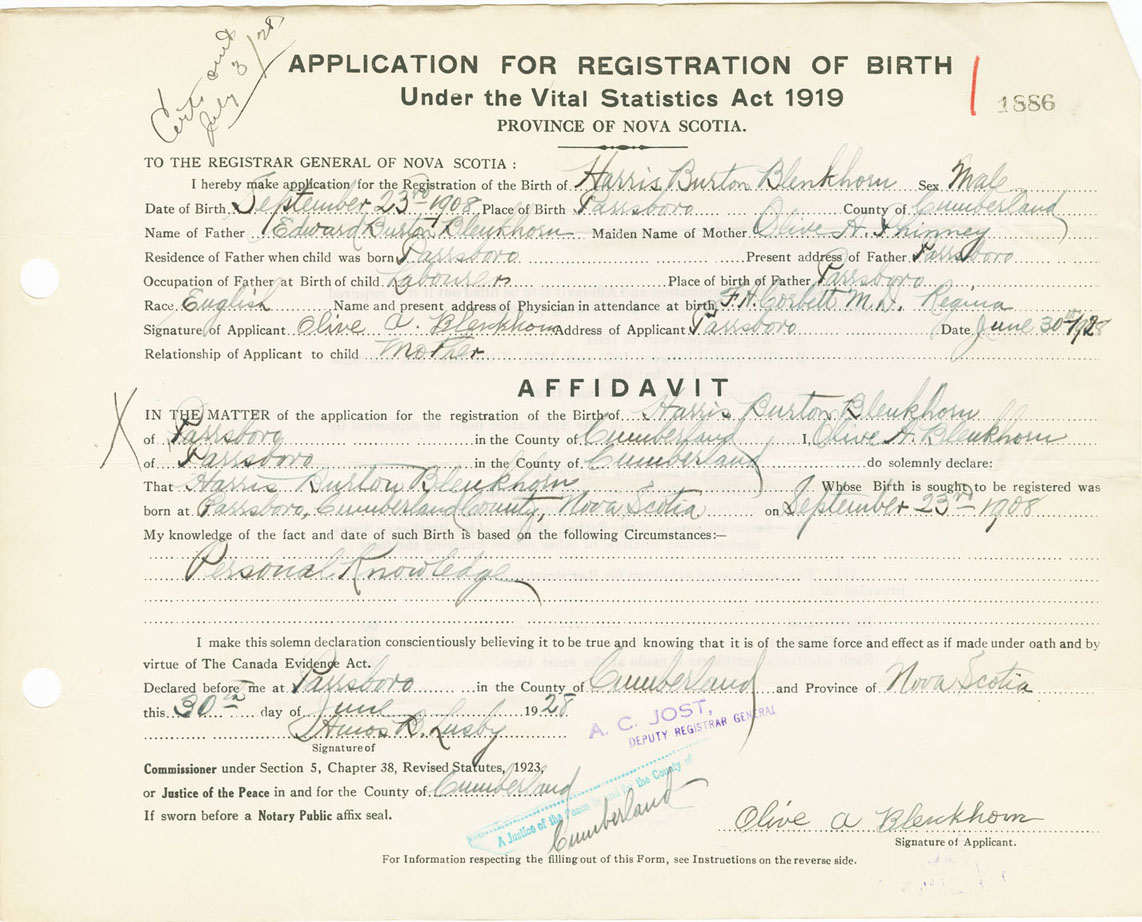 Certs sent
July 3/28
APPLICATION FOR REGISTRATION OF BIRTH
1886
Under the Vital Statistics Act 1919
PROVINCE OF NOVA SCOTIA.
TO THE REGISTRAR GENERAL OF NOVA SCOTIA :
I hereby make application for the Registration of the Birth of Harris Burton Blenkhorn Sex Male
Date of Birth September 23rd 1908 Place of Birth Parrsboro County of Cumberland
Name of Father Edward Burton Blenkhorn Maiden Name of Mother Olive A. Phinney
Residence of Father when child was born Parrsboro Present address of Father Parrsboro
Occupation of Father at Birth of child Labourer Place of birth of Father Parrsboro
Race English Name and present address of Physician in attendance at birth F. A. Corbett M.D. Regina
Signature of Applicant Olive A. Blenkhorn Address of Applicant Parrsboro Date June 30th 1928
Relationship of Applicant to child Mother
AFFIDAVIT
X
IN THE MATTER of the application for the registration of the Birth of Harris Burton Blenkhorn
of Parrsboro in the County of Cumberland I, Olive A. Blenkhorn
of Parrsboro in the County of Cumberland do solemnly declare:
That Harris Burton Blenkhorn Whose Birth is sought to be registered was
born at Parrsboro, Cumberland County, Nova Scotia on September 23rd 1908
My knowledge of the fact and date of such Birth is based on the following Circumstances:—
Personal Knowledge
I make this solemn declaration conscientiously believing it to be true and knowing that it is of the same force and effect as if made under oath and by
virtue of The Canada Evidence Act.
Declared before me at Parrsboro in the County of Cumberland and Province of Nova Scotia
this 30th day of June 1928
Amos B. Lusby
A. C. JOST,
DEPUTY REGISTRAR GENERAL
Signature of
Commissioner under Section 5, Chapter 38, Revised Statutes, 1923,
or Justice of the Peace in and for the County of Cumberland
A Justice of the Peace in and for the County of
Cumberland
If sworn before a Notary Public affix seal.
Olive A Blenkhorn
Signature of Applicant.
For Information respecting the filling out of this Form, see Instructions on the reverse side.